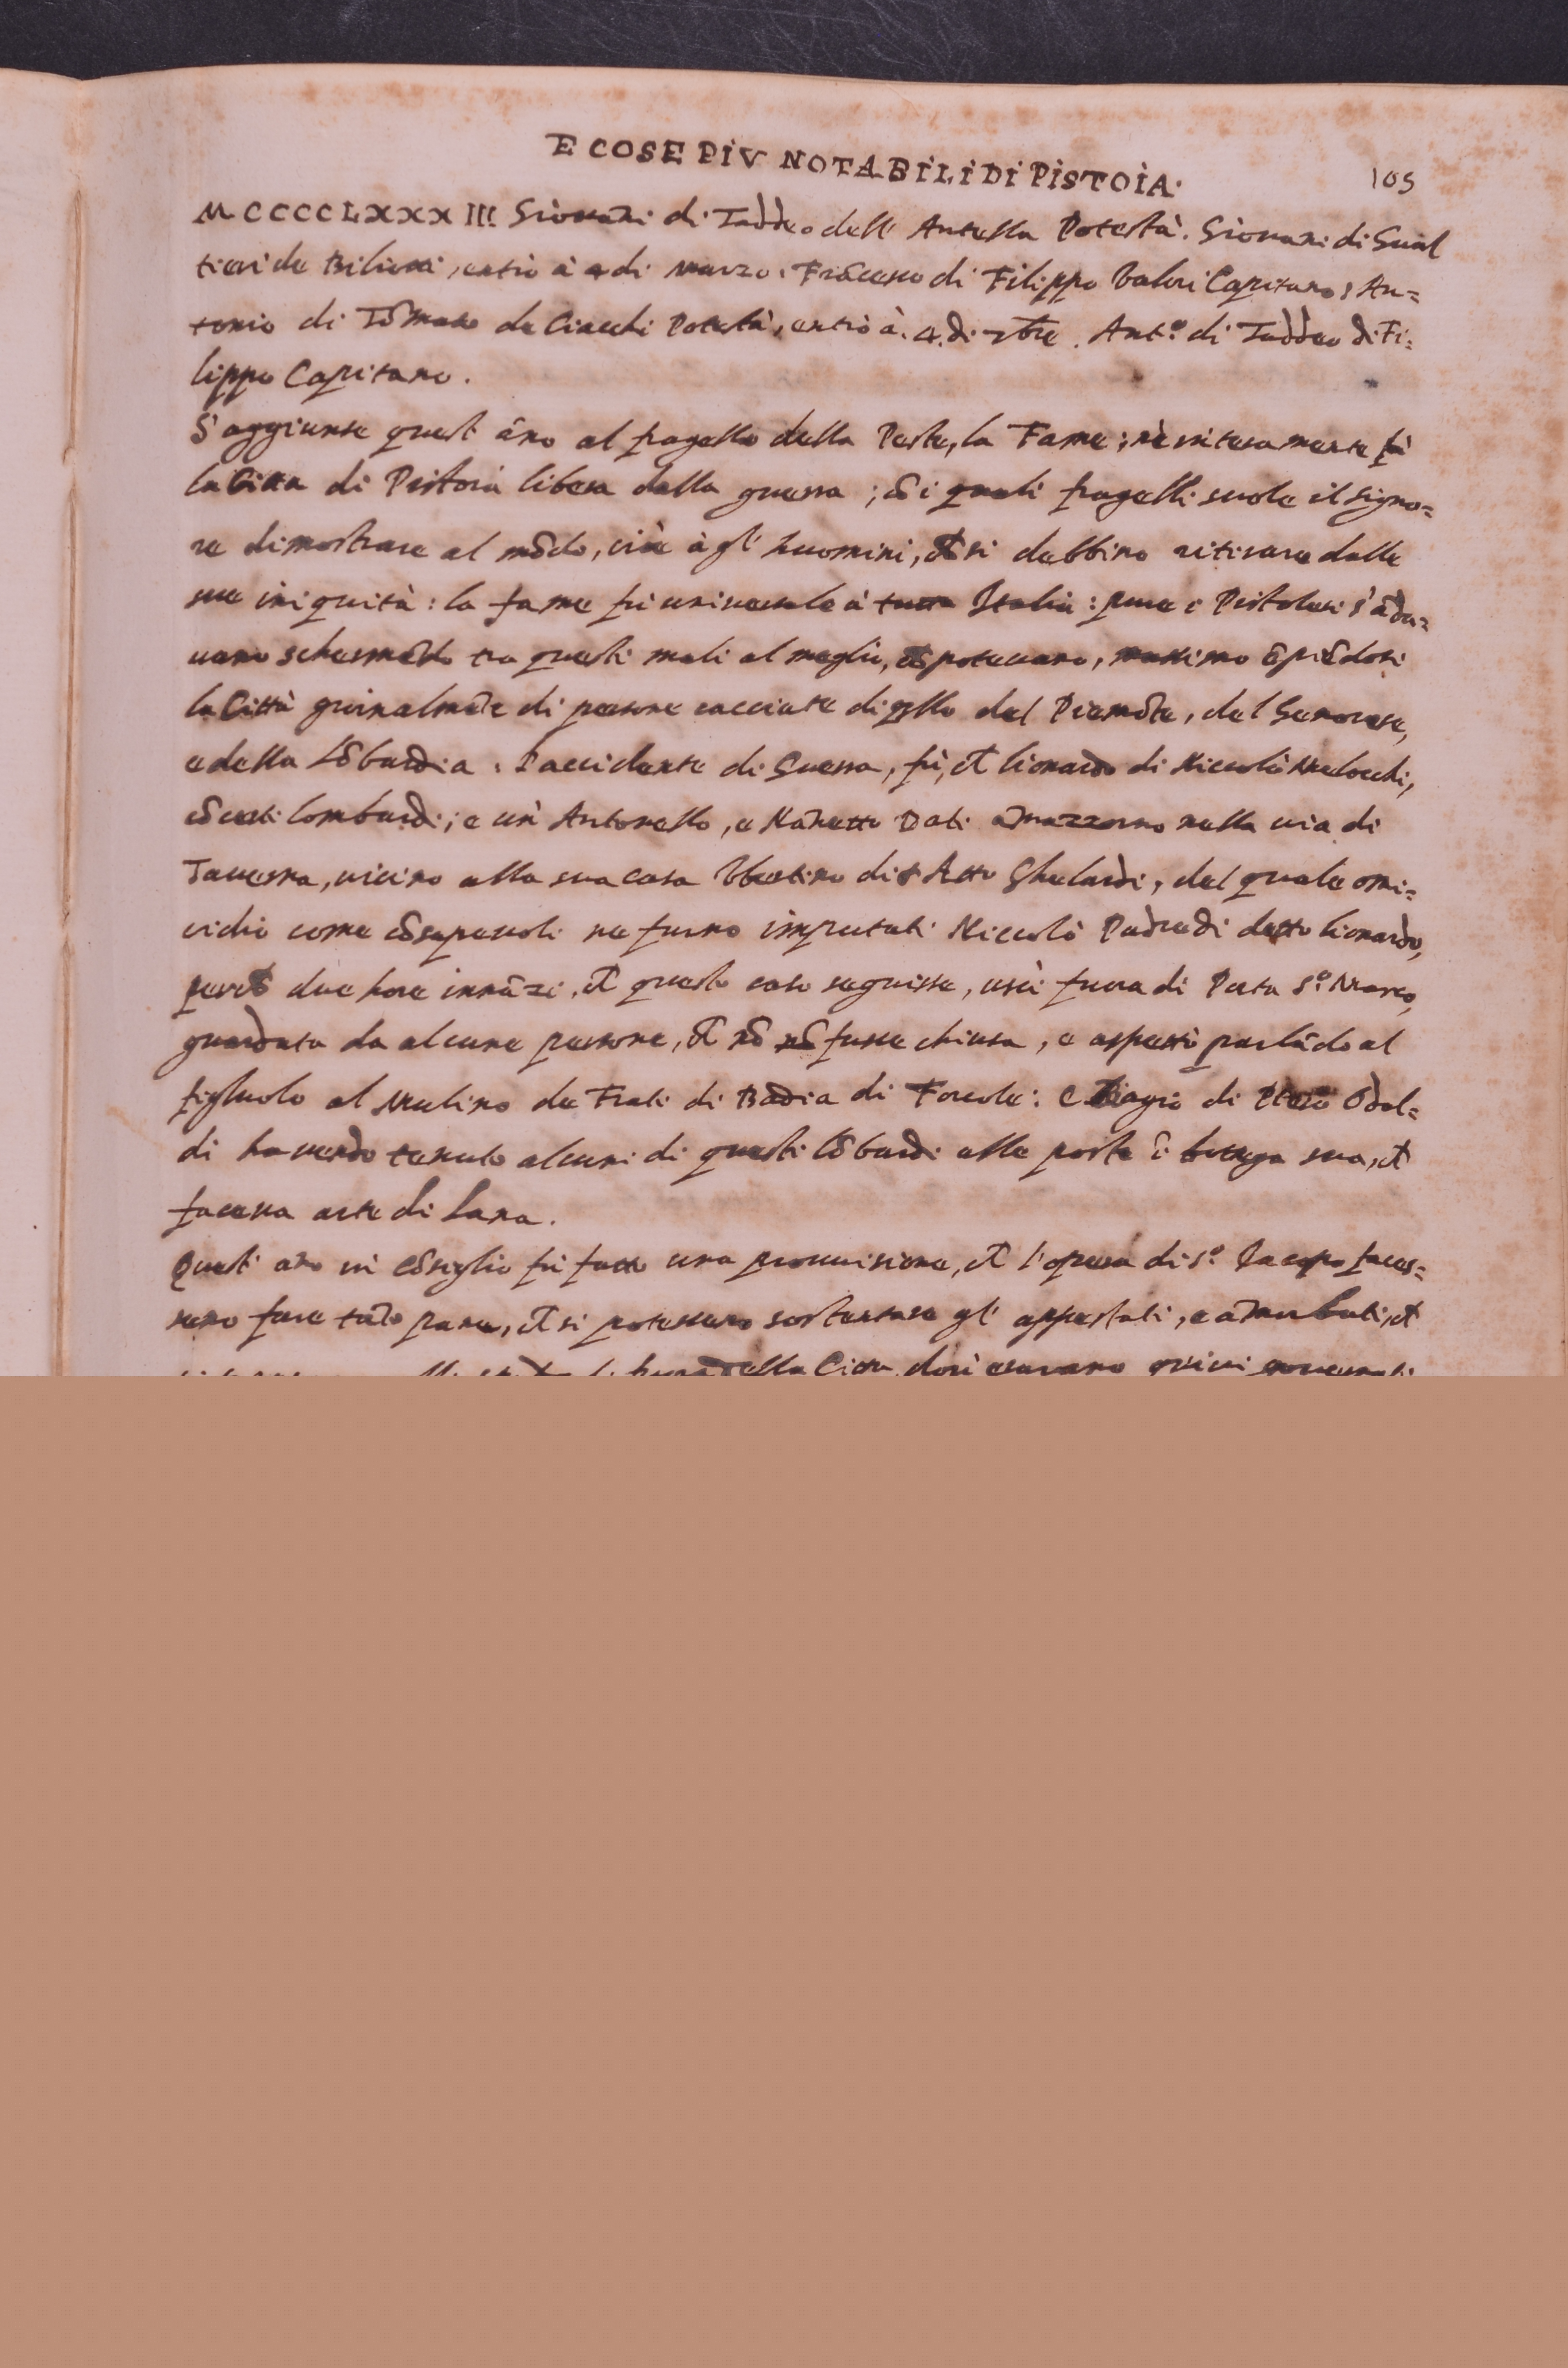 E COSE PIV NOTABILI DI PISTOIA. 105
MCCCCLXXXIII Giouāni di Taddeo dell' Antella Potestà. Giouani di Gual
tieri de Biliotti, entrò à 4 di Marzo. Frācesco di Filippo Valori Capitano; An=
tonio di Tōmaso de Ciacchi Potestà, entrò à. 4. di 7bre. Ant.º di Taddeo di Fi=
lippo Capitano.
S'aggiunse quest āno al fragello della Peste, la Fame; nè interamente fù
la Citta di Pistoia libera dalla guerra; cō i quali fragelli suole il Signo=
re dimostrare al mōdo, cioè à gl' huomini, che si debbino ritirare dalle
sue iniquità: la fame fù uniuersale à tutta Italia: pure i Pistolesi s'ādа=
uano schermēdo tra questi mali al meglio, che poteuano, massimo ēpiēdosi
la Città giornalmēte di persone cacciate di qllo del Piemōte, del Genouese,
e della Lōbardia. L'accidente di Guerra, fù, che Lionardo di Niccolò Melocchi,
cō certi Lombardi; e un' Antonello, e Nānetto Dati āmazzorno nella uia di
Tauerna, uicino alla sua casa Vbertino di Atto Ghelardi, del quale omi=
cidio come cōsapeuoli ne furno imputati Niccolò Padre di detto Lionardo,
perchè due hore innāzi, che questo caso seguisse, uscì fuora di Porta S.º Marco,
guardata da alcune persone, che nō fusse chiusa, e aspettò parlādo al
figluolo al Mulino de Frati di Badia di Forcole: e Biagio di Piero Odal=
di hauendo tenuto alcuni di questi Lōbardi alle poste ī bottega sua, che
faceua arte di Lana.
Quest' āno in Cōsiglio fù fatto una prouuisione, che l'opera di S.º Iacopo faces=
sero fare tāto pane, che si potessero sostentare gl' appestati, e āmorbati, che
della Citta, dou' erano quiui